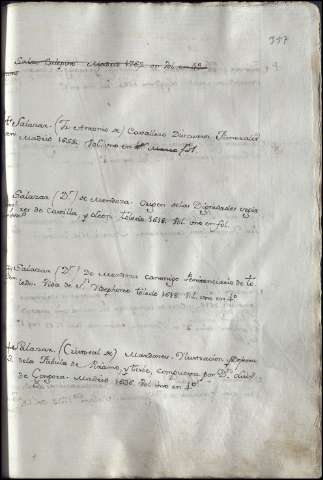 397
Salas Calepino Madrid 1762 en fol. en 4º
Salazar. (Fr. Antonio de) Cavallero Discursos Funerales
en Madrid 1658. Vol. uno en fol.
Salazar (Dr.) de Mendoza. Origen de las Dignidades segla
res de Castilla, y Leon. toledo 1618. Vol. uno en fol.
Salazar (Dr.) de Mendoza canonigo Penitenciario de to
ledo. Vida de Sn. Ildephonso toledo 1618. Vol. uno en 4º
Salazar. (Cristobal de) Mardones. Ilustracion y defensa
de la Fabula de Piramo, y tisbe, compuesta por Dn. Luis
de Gongora. Madrid 1636. Vol. uno en 4º